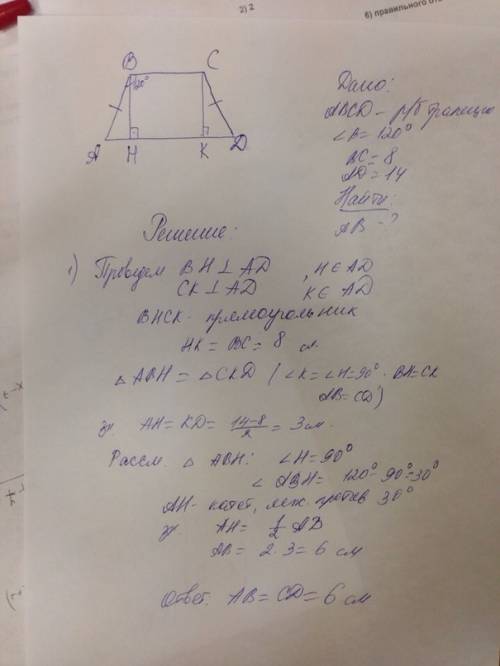 2) 2
6) правильного отв
B
C
120°
A
H
K
D
Дано:
ABCD - р/б трапеция
∠B = 120°
BC = 8
AD = 14
Найти:
AB - ?
Решение:
1) Проведем BH ⊥ AD , H ∈ AD
CK ⊥ AD K ∈ AD
BHCK - прямоугольник
HK = BC = 8 см
△ ABH = △ CKD ( ∠K = ∠H = 90° . BH = CK
AB = CD )
AH = KD = 14-8/2 = 3 см.
Рассм. △ ABH: ∠H = 90°
∠ ABH = 120° - 90° = 30°
AH - катет, леж. против 30°
AH = 1/2 AB
AB = 2 · 3 = 6 см
Ответ. AB = CD = 6 см